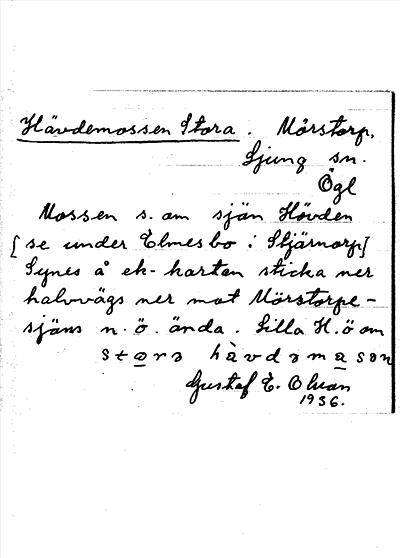 Hävdemossen Stora. Mörstorp,
Ljung sn.
Ögl
Mossen s. om sjön Hövden
[se under Elmesbo i Stjärnorp]
Synes å ek-kartan sticka ner
halvvägs ner mot Mörstorpe-
sjöns n. ö. ända. Lilla H. ö om
stɷrə hàvdəmasən
Gustaf E. Olman
1936.